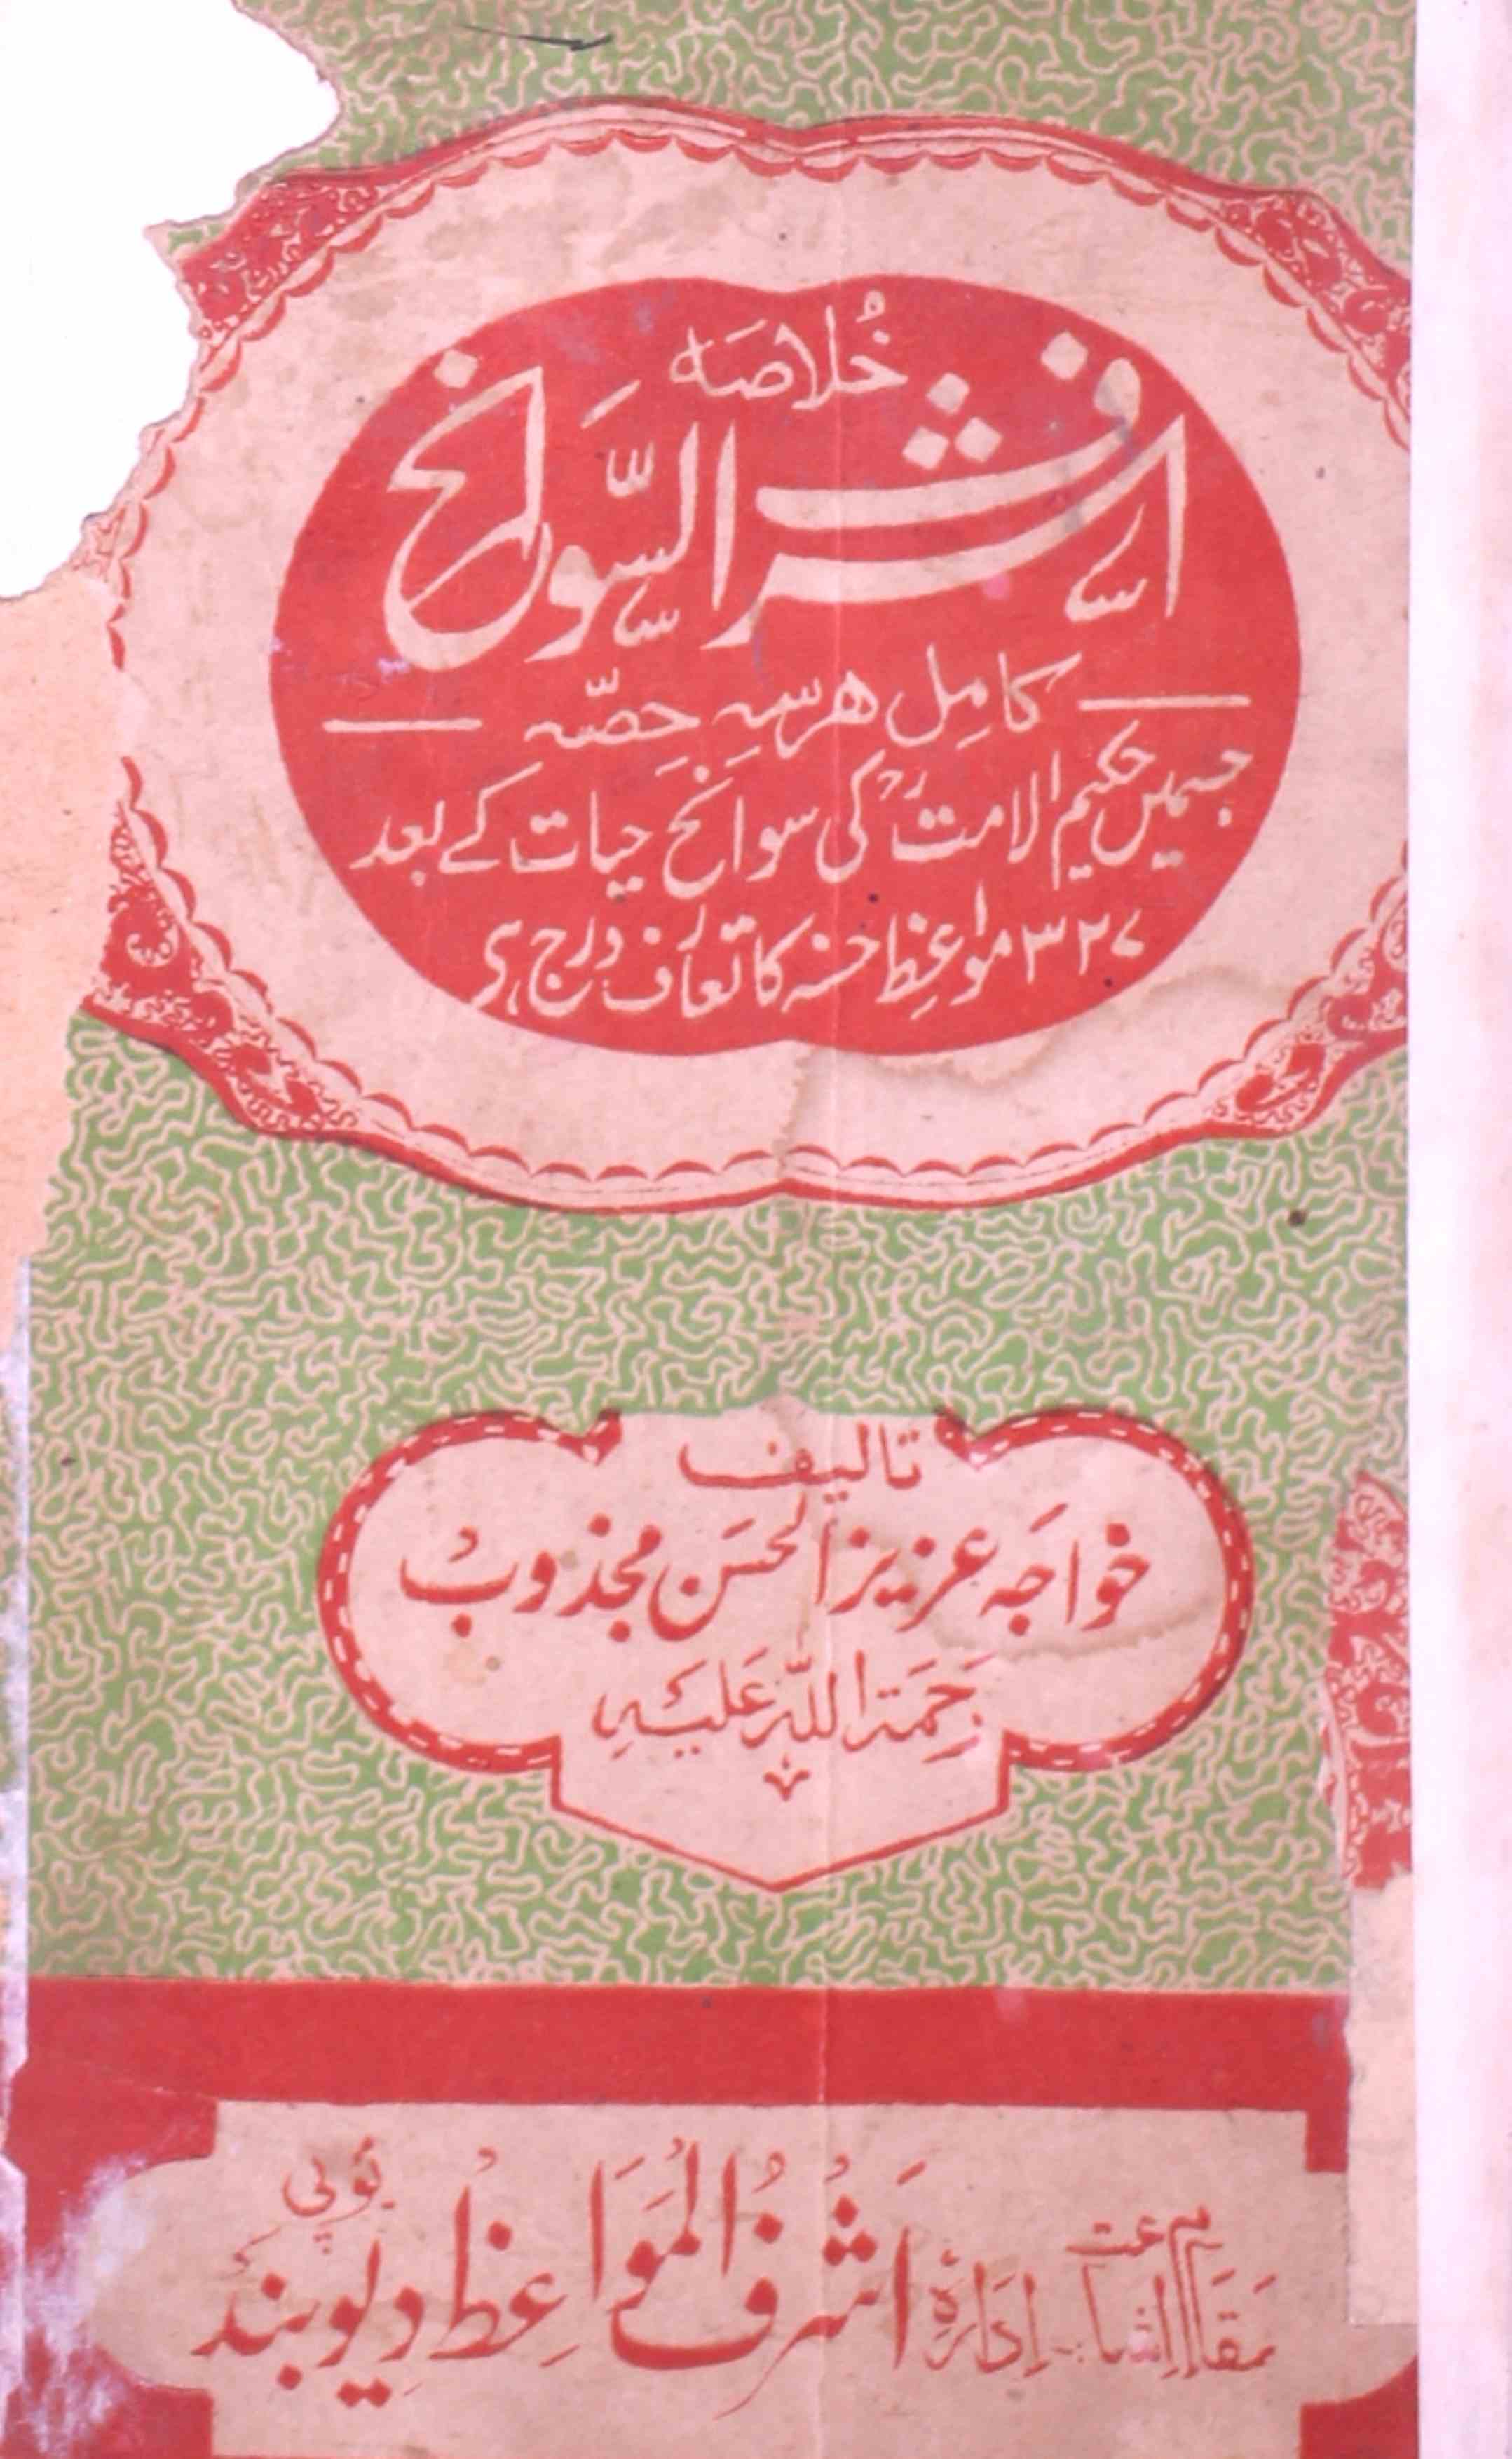 خُلاصَہ
اشرف السَّوانح
کامِل ھر سہ حِصّہ
جسمیں حکیم الامتؒ کی سوانح حیات کے بعد
۳۲۷ مواعظِ حسنہ کا تعارُف درج ہی
تالیف
خواجَہ عزیز الحسَن مجذوب
رَحمَۃ اللّٰہ عَلیہِ
مقام اشاعت اِدَارۂ اَشرفُ المَوَاعِظ دیوبند یُوپی